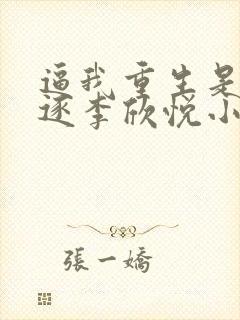 逼我重生是
逐李欣悦小
張一嬌